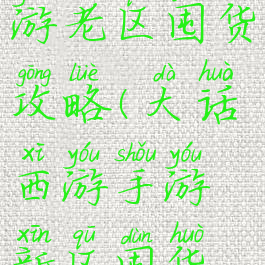 游老区囤货
gōng lüè dà huà
攻略(大话
xī yóu shǒu yóu
西游手游
xīn qū dùn huò
新区囤货